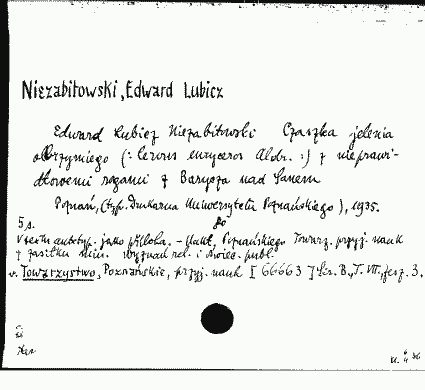 Niezabitowski, Edward Lubicz
Edward Lubicz Niezabitowski Czaszka jelenia
olbrzymiego (: Cervus euryceros Aldr. :) z nieprawi-
dłowemi rogami z Barycza nad Sanem
Poznań, (typ. Drukarnia Uniwersytetu Poznańskiego), 1935.
5 s.
V recta autotyp. jako − Nakł. Poznańskiego Towarz. przyj. nauk
z zasiłku Min. Wyznań rel. i Oświec. publ.
v. Towarzystwo, Poznańskie, przyj. nauk [66663] Ser. B., T. VII., zesz. 3.